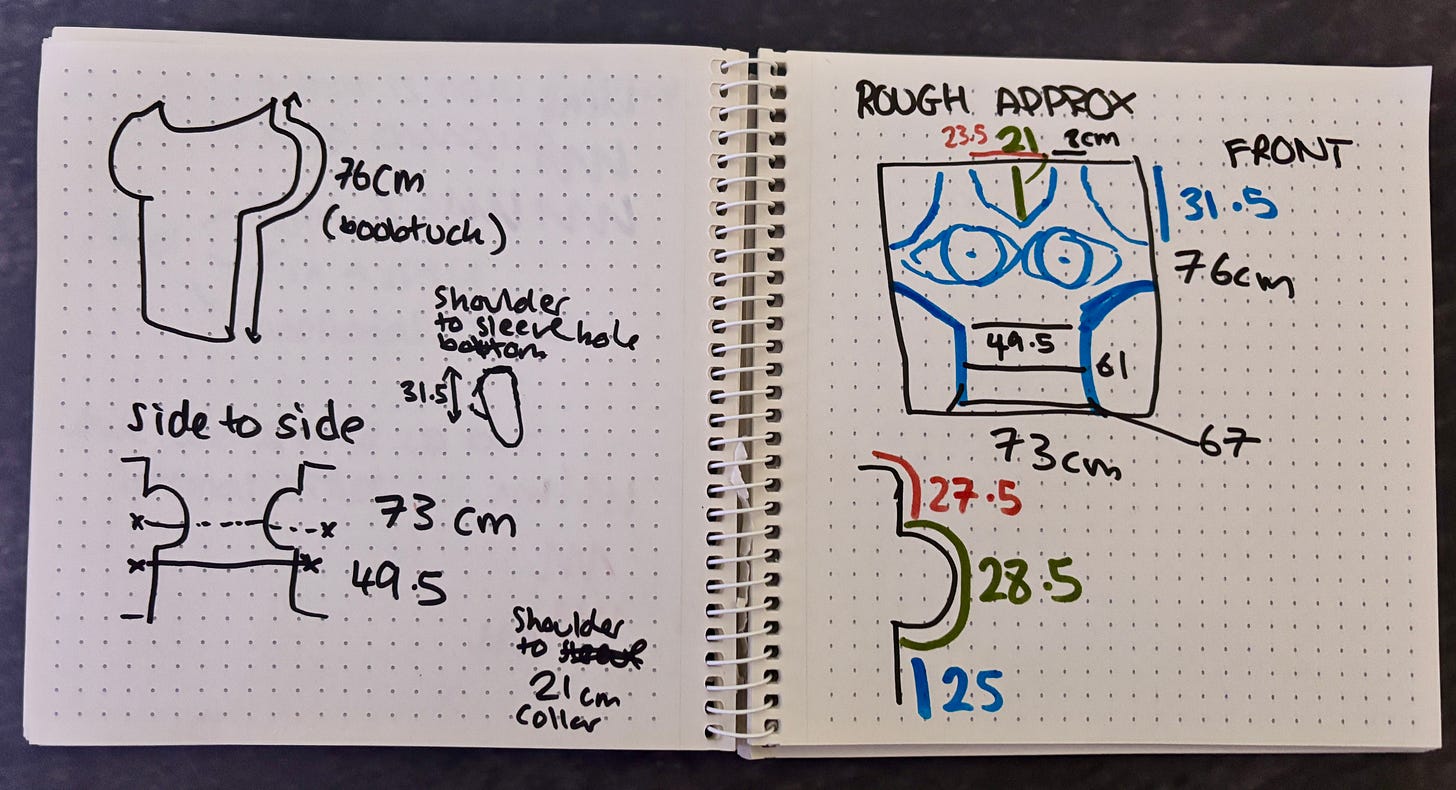 76cm
(boobtuck)
shoulder
to sleeve hole
bottom
31.5
side to side
73 cm
49.5
shoulder
to
21cm
collar
ROUGH APPROX
23.5 21 8cm
FRONT
31.5
76cm
49.5
61
67
73cm
27.5
28.5
25